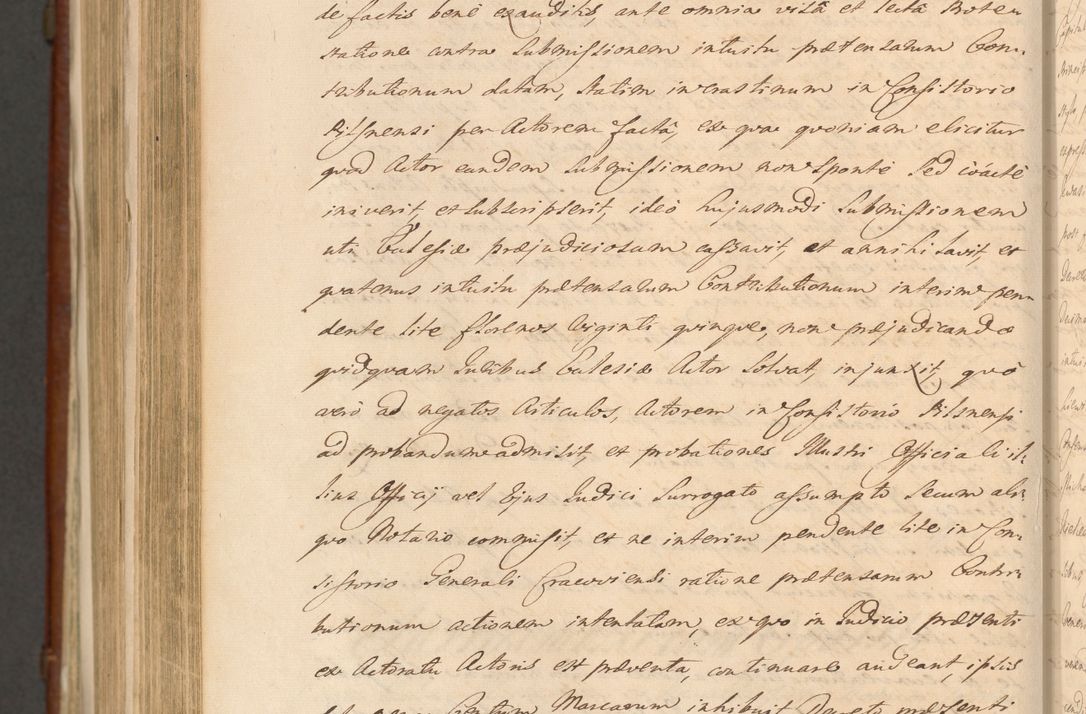 de factis benè exauditis, ante omnia visâ et lectâ Protes
tatione contra Submissionem intuitu prætensarum Con„
tributionum datam, statim in crastinum in Consistorio
Pilsnensi per Actorem factâ, ex qva qvoniam elicitur
qvod Actor eandem Submissionem non sponte sed coactè
iniverit, et subscripserit, ideò hujusmodi Submissionem
uti Ecclesiæ præjudiciosam cassavit, et annihilavit, et
qvatenus intuitu prætensarum Contributionum interim pen„
dente lite florenos Viginti qvinqve, non præjudicando
qvidqvam Juribus Ecclesiæ Actor solvat, injunxit, qvò
verò ad negatos Articulos, Actorem in Consistorio Pilsnensi
ad probandum admisit, et probationes Illustri Officiali il„
lius Officij vel Ejus Judici Surrogato assumpto secum ali„
qvo Notario commisit, et ne interim pendente lite in Con„
sistorio Generali Cracoviensi ratione prætensarum Contri„
butionum actionem intentatam, ex qvo in Judicio præsenti
ex Actoratu Actoris est præventa, continuare audeant, ipsis
Centum Marcarum inhibuit Decreto præsenti